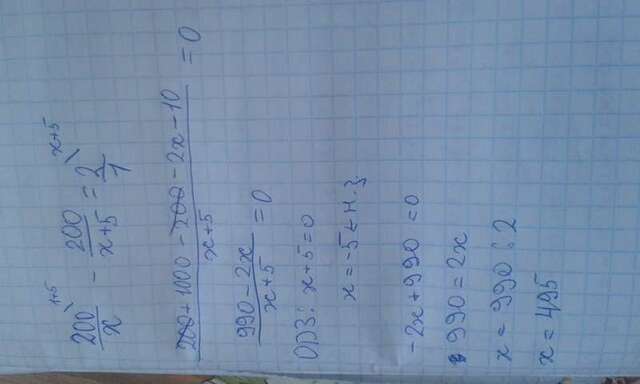 200/x ^1+5 - 200/x+5 = 2/1 ^x+5
200+1000-200-2x-10/x+5 = 0
990-2x/x+5 = 0
ОДЗ: x+5=0
x=-5 ← Н.З.
-2x+990=0
990=2x
x=990:2
x=495